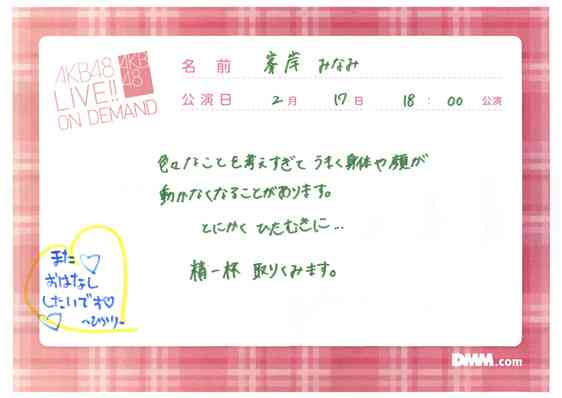 AKB48
LIVE!!
ON DEMAND
AKB
48
名前 峯岸 みなみ
公演日 2月 17日 18:00 公演
色々なことを考えすぎて うまく身体や顔が
動かなくなることがあります。
とにかく ひたむきに...
精一杯 取りくみます。
また♡
おはなし
したいです♡
DMM.com